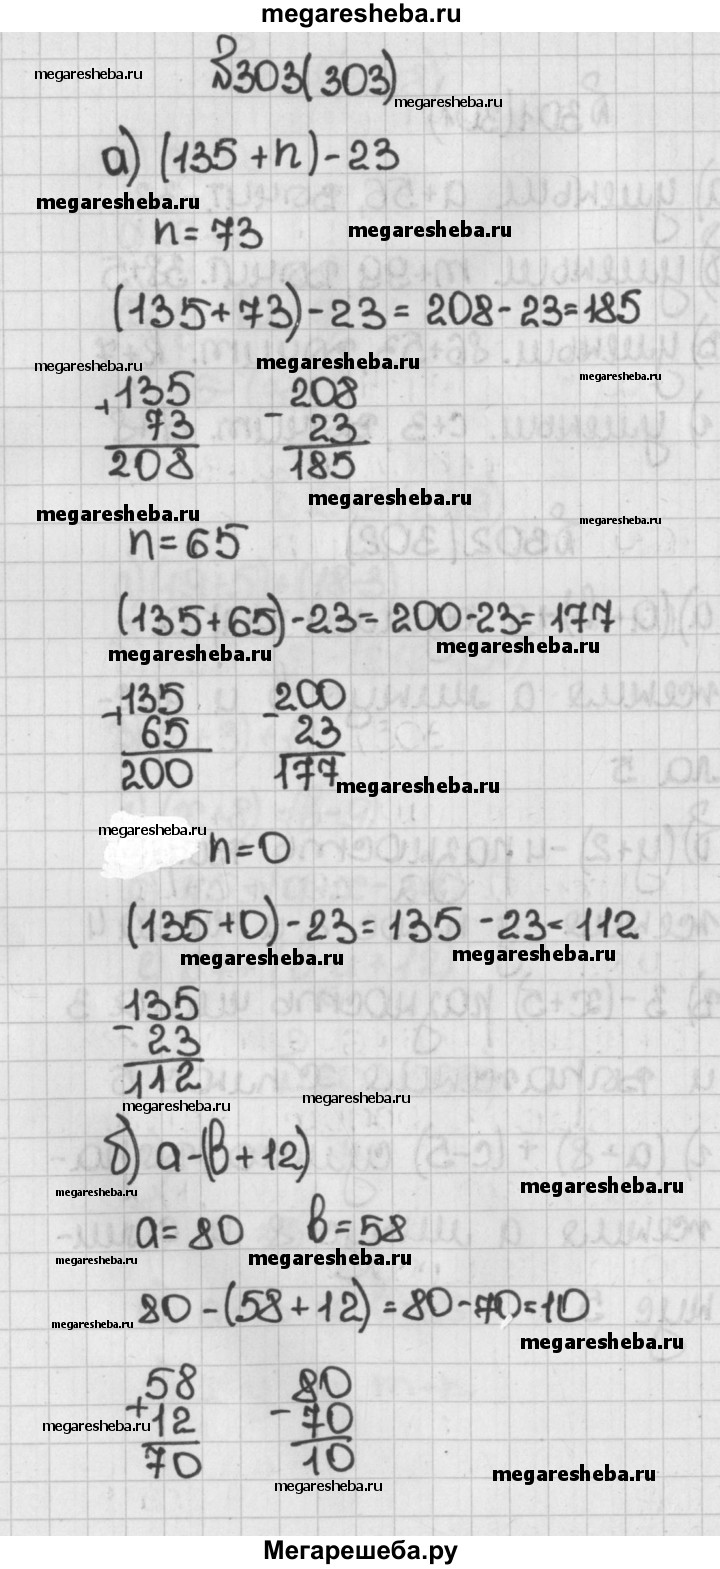 megaresheba.ru
№303(303)
megaresheba.ru
megaresheba.ru
а) (135+n)-23
megaresheba.ru
n=73
megaresheba.ru
(135+73)-23=208-23=185
megaresheba.ru
megaresheba.ru
megaresheba.ru
+135 -208
73 23
208 185
megaresheba.ru
megaresheba.ru
megaresheba.ru
n=65
(135+65)-23=200-23=177
megaresheba.ru
megaresheba.ru
+135 -200
65 23
200 177
megaresheba.ru
megaresheba.ru
n=0
(135+0)-23=135-23=112
megaresheba.ru
megaresheba.ru
-135
23
112
megaresheba.ru
megaresheba.ru
б) a-(в+12)
megaresheba.ru
megaresheba.ru
a=80 в=58
megaresheba.ru
megaresheba.ru
80-(58+12)=80-70=10
megaresheba.ru
megaresheba.ru
+58 -80
12 70
70 10
megaresheba.ru
megaresheba.ru
megaresheba.ru
Мегарешеба.ру